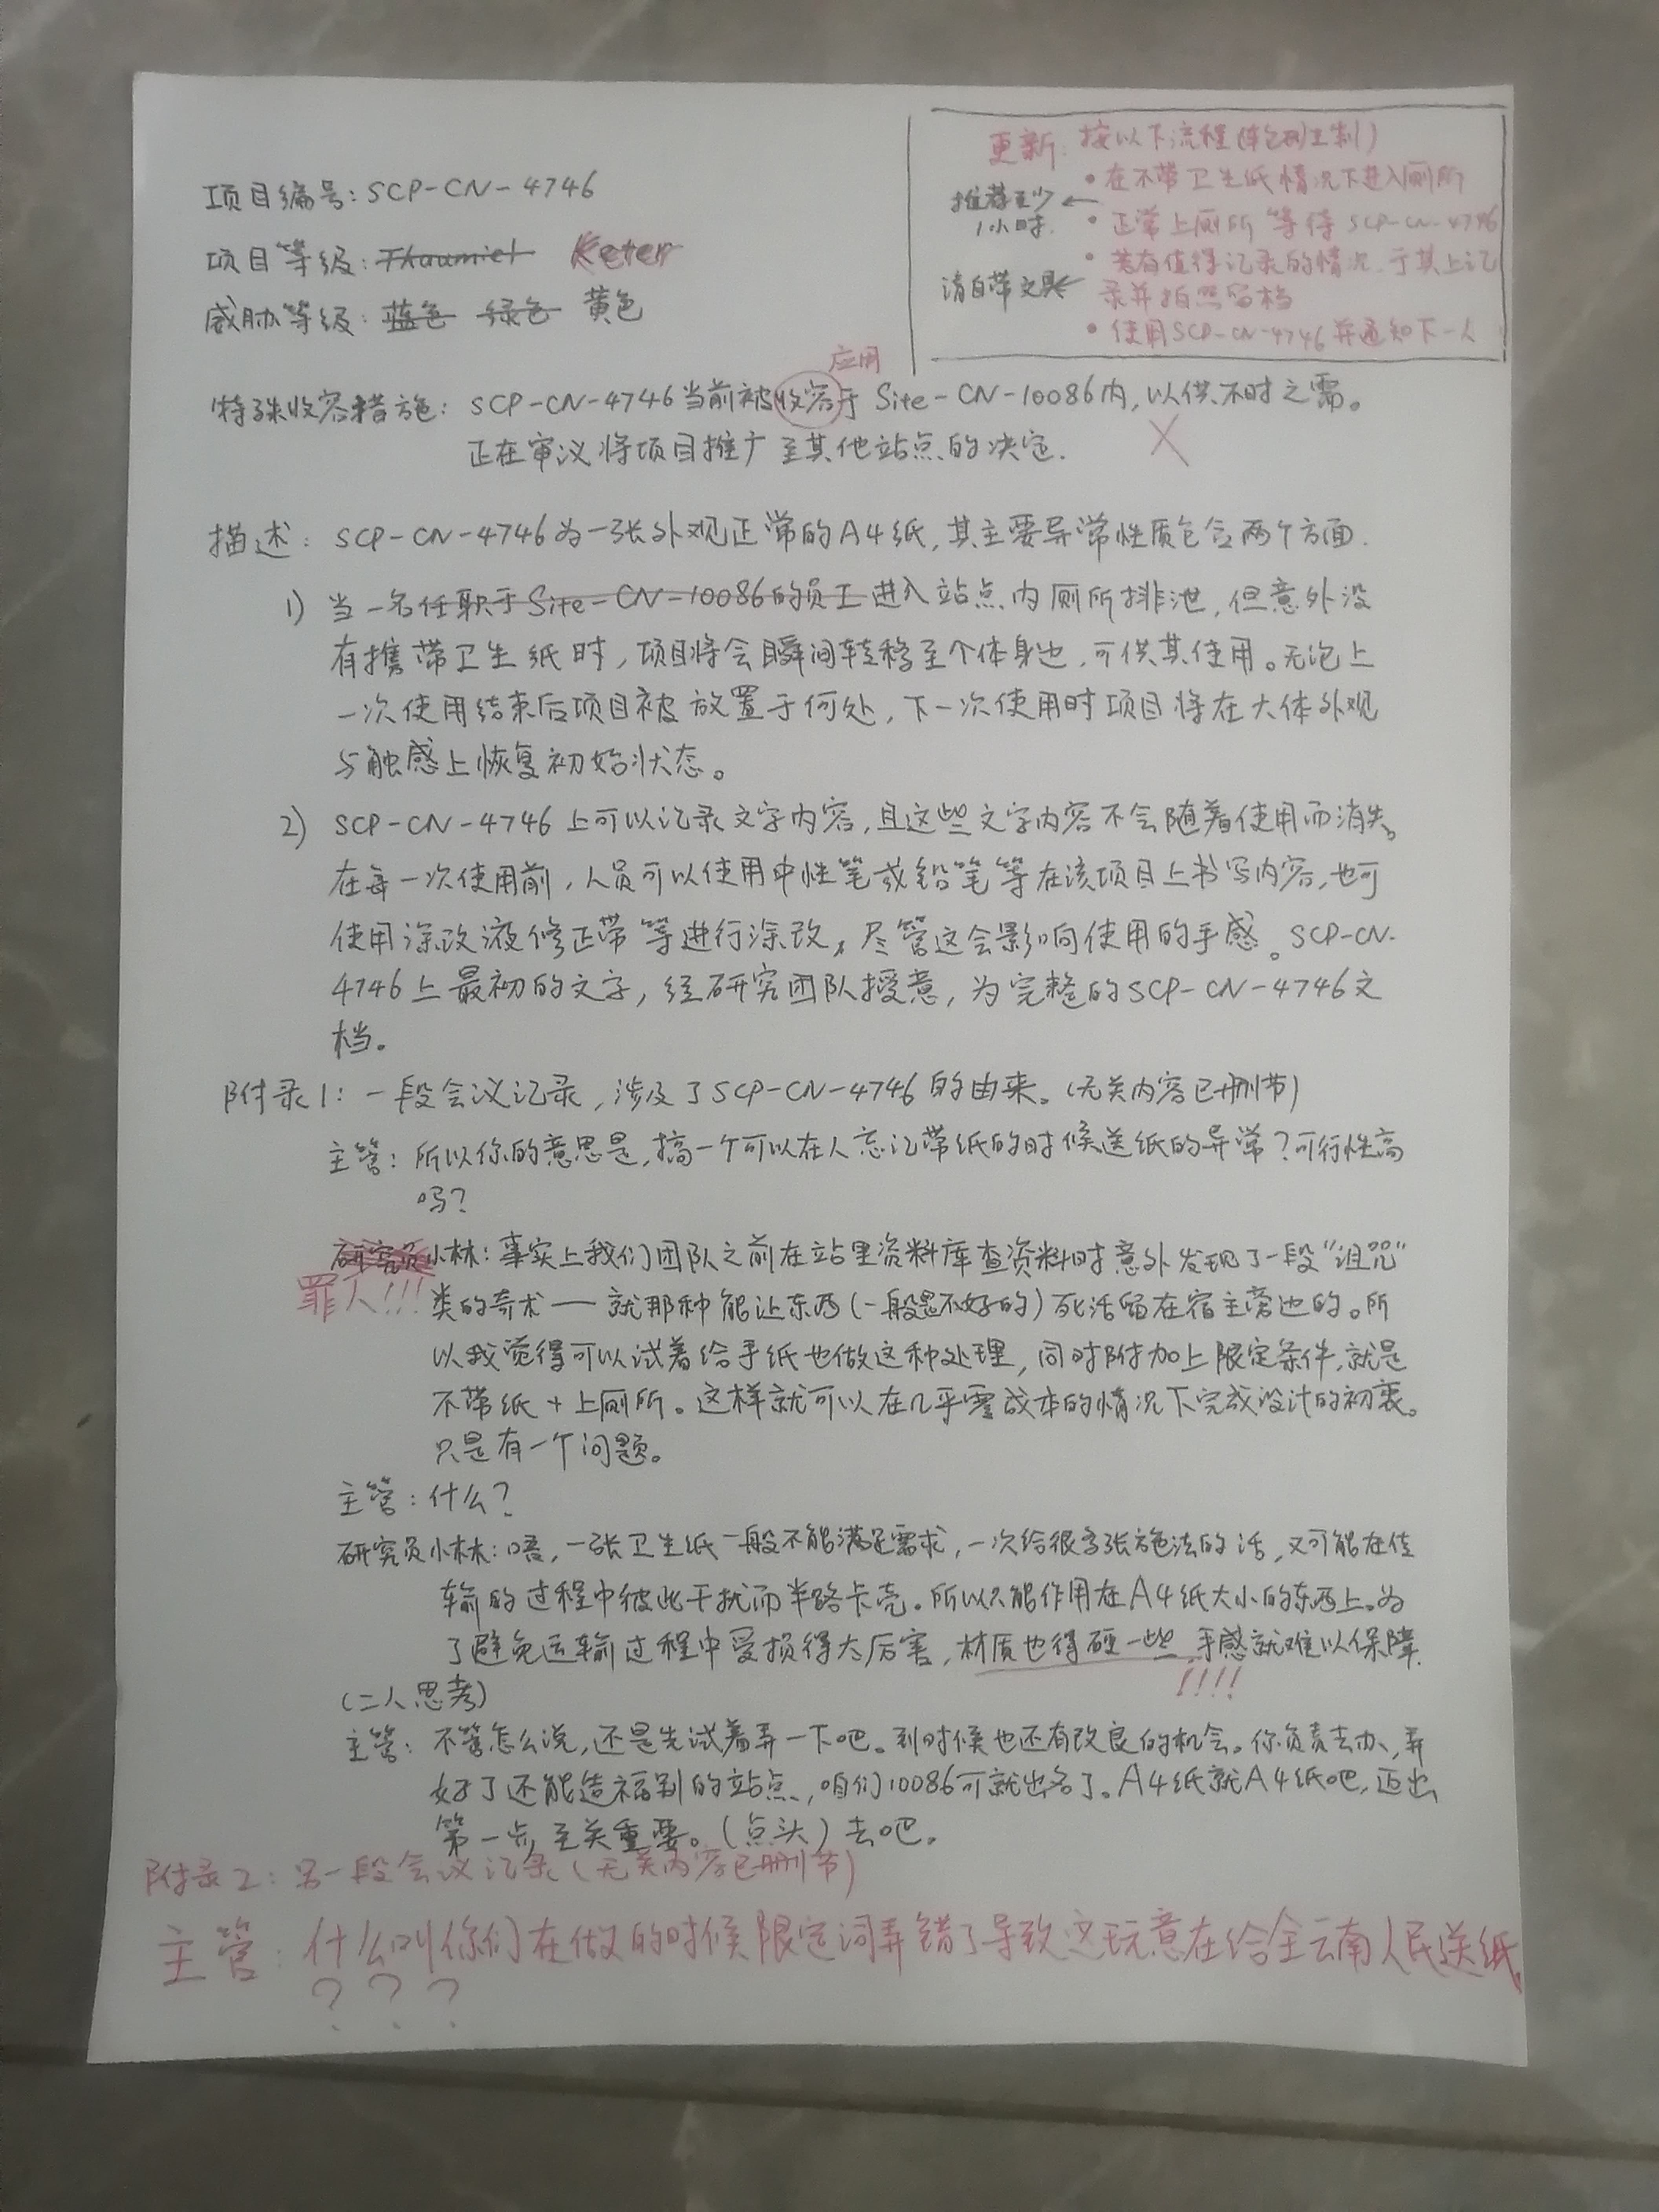 更新：按以下流程(轮班制)
• 在不带卫生纸情况下进入厕所
推荐至少
1小时.
• 正常上厕所 等待 SCP-CN-4746
• 若有值得记录的情况,于其上记
录并拍照留档
请自带文具
• 使用SCP-CN-4746并通知下一人
项目编号：SCP-CN-4746
项目等级：Thaumiel Keter
威胁等级：蓝色 绿色 黄色
应用
特殊收容措施：SCP-CN-4746当前被收容于 Site-CN-10086内,以供不时之需。
正在审议将项目推广至其他站点的决定.
描述：SCP-CN-4746为一张外观正常的A4纸,其主要异常性质包含两个方面.
1) 当一名任职于Site-CN-10086的员工进入站点内厕所排泄,但意外没
有携带卫生纸时,项目将会瞬间转移至个体身边,可供其使用。无论上
一次使用结束后项目被放置于何处,下一次使用时项目将在大体外观
与触感上恢复初始状态。
2) SCP-CN-4746上可以记录文字内容,且这些文字内容不会随着使用而消失。
在每一次使用前,人员可以使用中性笔或铅笔等在该项目上书写内容,也可
使用涂改液修正带等进行涂改,尽管这会影响使用的手感。SCP-CN-
4746上最初的文字,经研究团队授意,为完整的SCP-CN-4746文
档。
附录1：一段会议记录,涉及了SCP-CN-4746的由来。(无关内容已删节)
主管：所以你的意思是,搞一个可以在人忘记带纸的时候送纸的异常？可行性高
吗？
研究员小林：事实上我们团队之前在站里资料库查资料时意外发现了一段“诅咒”
罪人!!!
类的奇术——就那种能让东西(一般是不好的)死活留在宿主旁边的。所
以我觉得可以试着给手纸也做这种处理,同时附加上限定条件,就是
不带纸+上厕所。这样就可以在几乎零成本的情况下完成设计的初衷。
只是有一个问题。
主管：什么？
研究员小林：唔,一张卫生纸一般不能满足需求,一次给很多张施法的话,又可能在传
输的过程中彼此干扰而半路卡壳。所以只能作用在A4纸大小的东西上。为
了避免运输过程中受损得太厉害,材质也得硬一些,手感就难以保障.
!!!!
(二人思考)
主管：不管怎么说,还是先试着弄一下吧。到时候也还有改良的机会。你负责去办,弄
好了还能造福别的站点,咱们10086可就出名了。A4纸就A4纸吧,迈出
第一步,至关重要。(点头)去吧。
附录2：另一段会议记录(无关内容已删节)
主管：什么叫你们在做的时候限定词弄错了导致这玩意在给全云南人民送纸
？？？